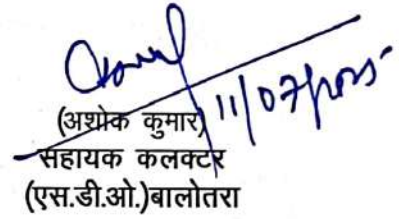 11/07/2025
(अशोक कुमार)
सहायक कलक्टर
(एस.डी.ओ.)बालोतरा